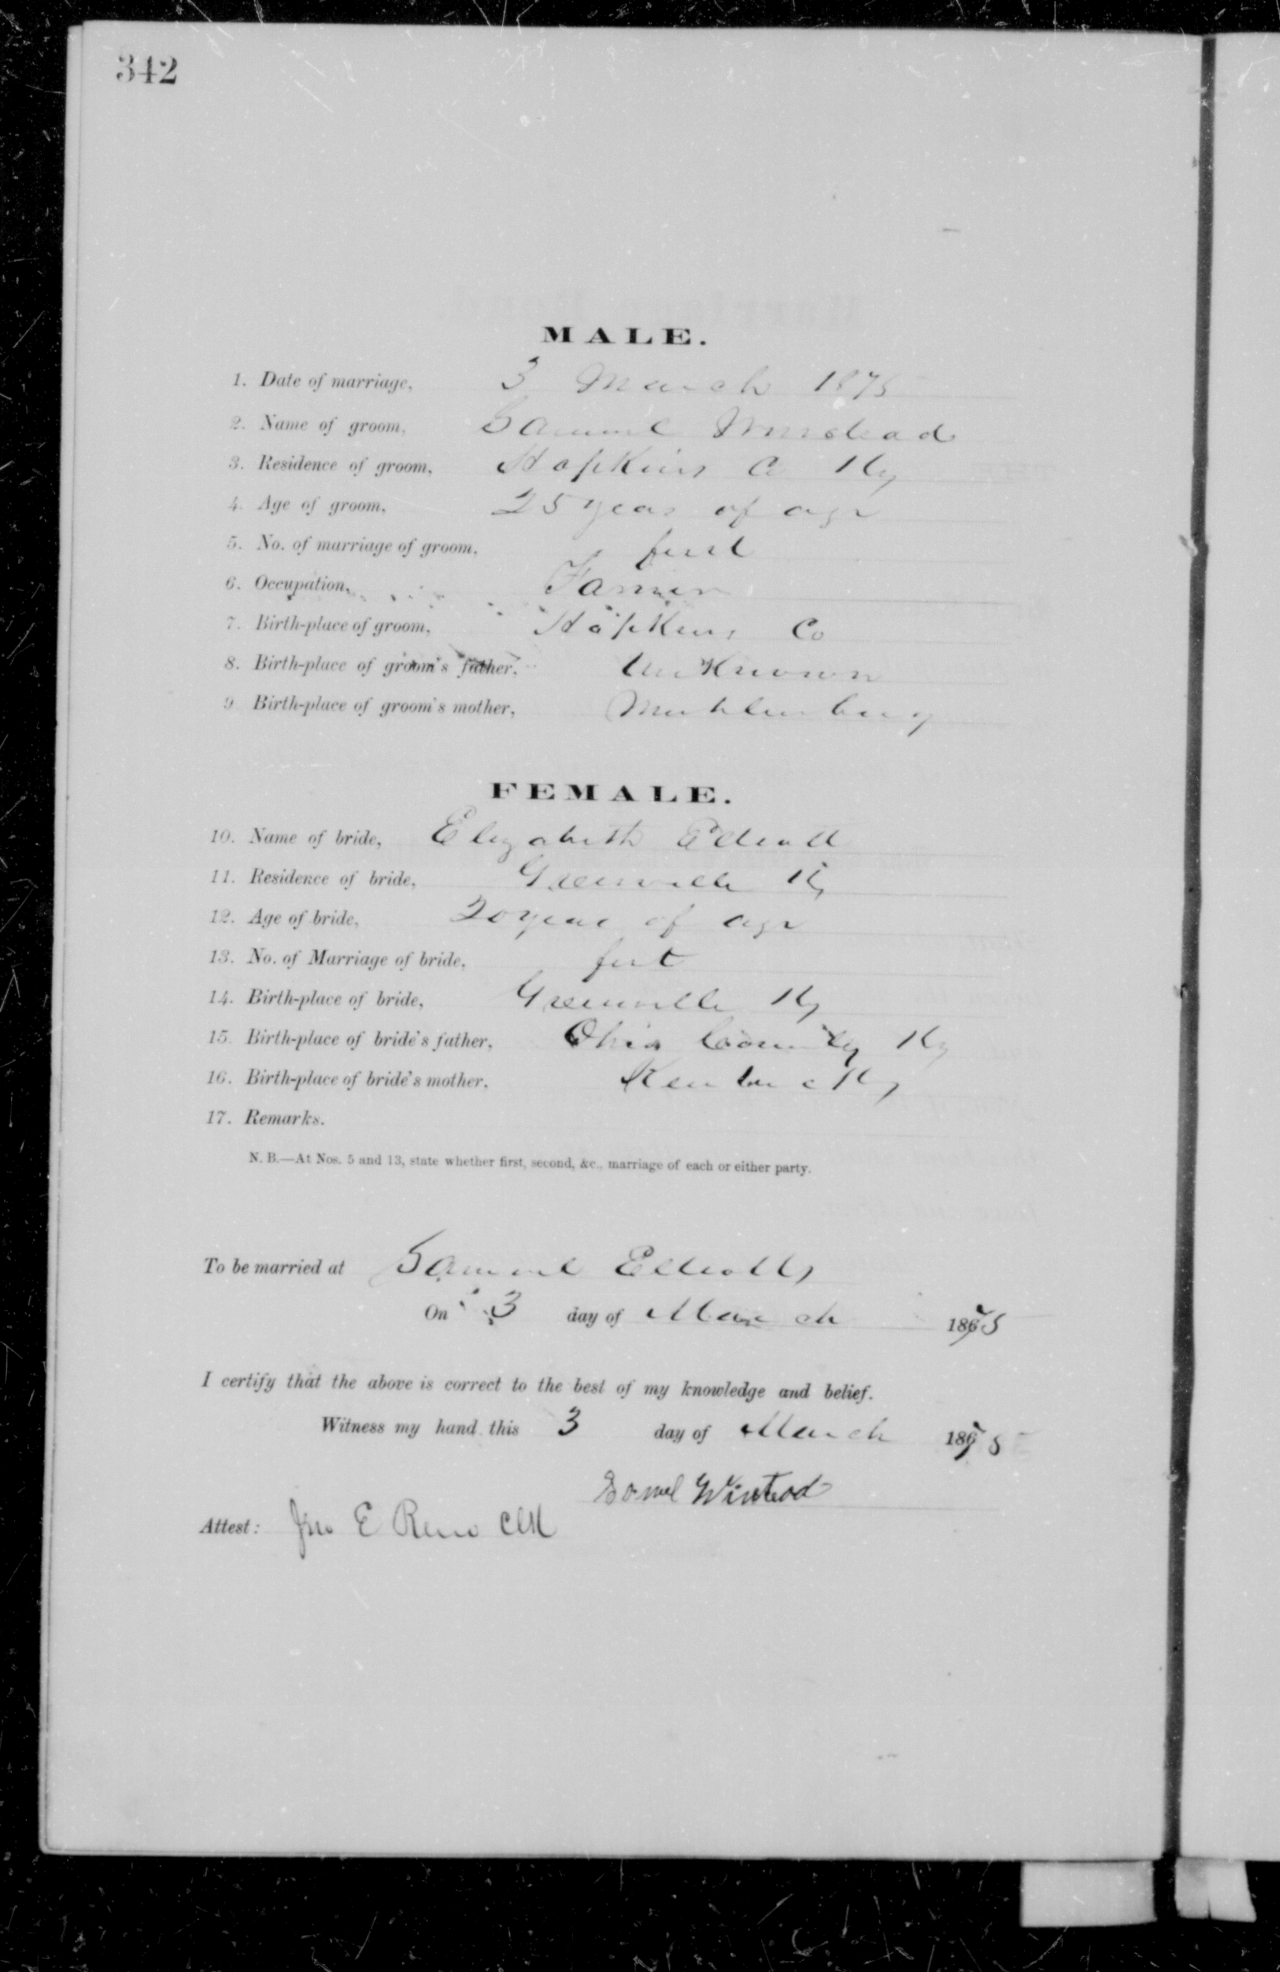 342
MALE.
1. Date of marriage, 3 March 1875
2. Name of groom, Samuel Winstead
3. Residence of groom, Hopkins Co Ky
4. Age of groom, 25 years of age
5. No. of marriage of groom, first
6. Occupation, Farmer
7. Birth-place of groom, Hopkins Co
8. Birth-place of groom's father, Unknown
9. Birth-place of groom's mother, Muhlenberg
FEMALE.
10. Name of bride, Elizabeth Elliott
11. Residence of bride, Greenville Ky
12. Age of bride, 20 years of age
13. No. of Marriage of bride, first
14. Birth-place of bride, Greenville Ky
15. Birth-place of bride's father, Ohio County Ky
16. Birth-place of bride's mother,
17. Remarks.
N. B.—At Nos. 5 and 13, state whether first, second, &c., marriage of each or either party.
To be married at Samuel Elliotts
On 3 day of March 1875
I certify that the above is correct to the best of my knowledge and belief.
Witness my hand this 3 day of March 1875
Samel Winstead
Attest: Jno E Reno Clk